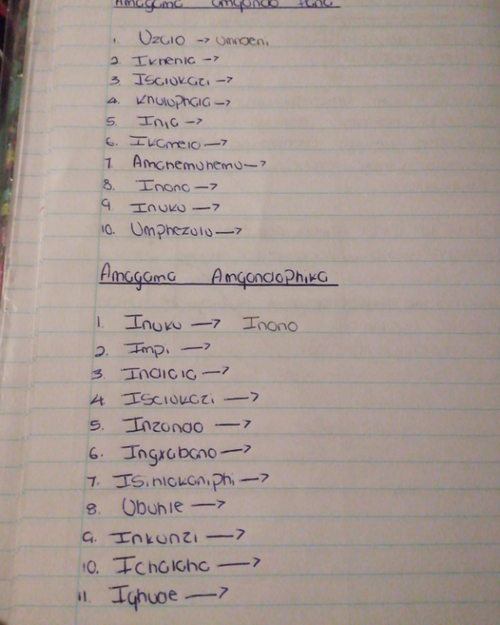 Amagama amqondo fana
1. Uzalo → umndeni
2. Ikhehla →
3. Isalukazi →
4. Khuluphala →
5. Inja →
6. Ikamelo →
7. Amahemuhemu →
8. Inono →
9. Inuku →
10. Umphezulu →
Amagama Amqondophika
1. Inuku → Inono
2. Impi →
3. Indlala →
4. Isalukazi →
5. Inzondo →
6. Ingxabano →
7. Isihlakaniphi →
8. Ubuhle →
9. Inkunzi →
10. Ichalaha →
11. Iqhude →